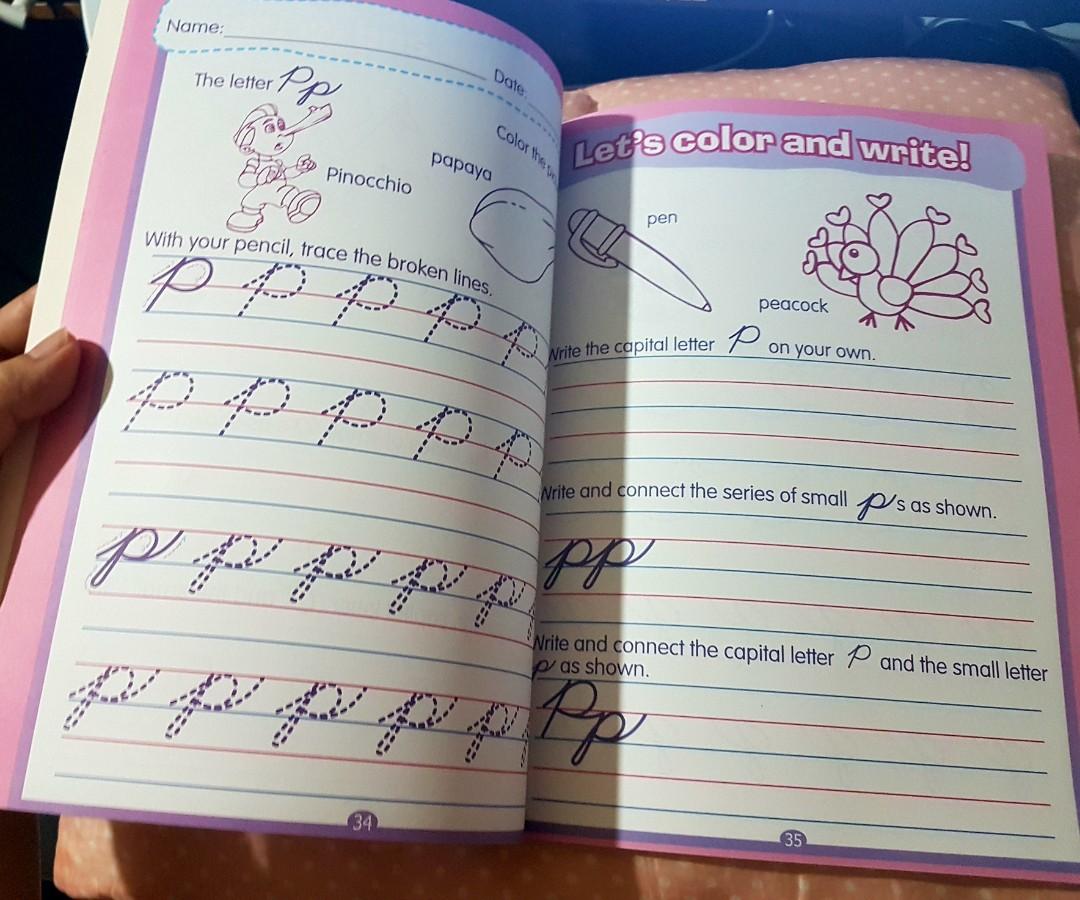 Name:
Date:
The letter Pp
Color the
papaya
Pinocchio
With your pencil, trace the broken lines.
P P P P P
P P P P P
p p p p p
p p p p p
34
Let's color and write!
pen
peacock
Write the capital letter P on your own.
Write and connect the series of small p's as shown.
pp
Write and connect the capital letter P and the small letter
p as shown.
Pp
35